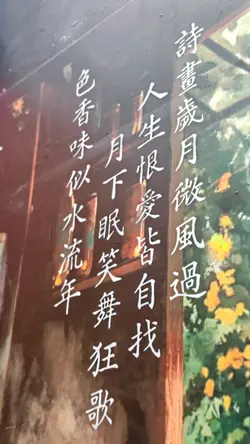 詩畫歲月微風過
人生恨愛皆自找
月下眠笑舞狂歌
色香味似水流年